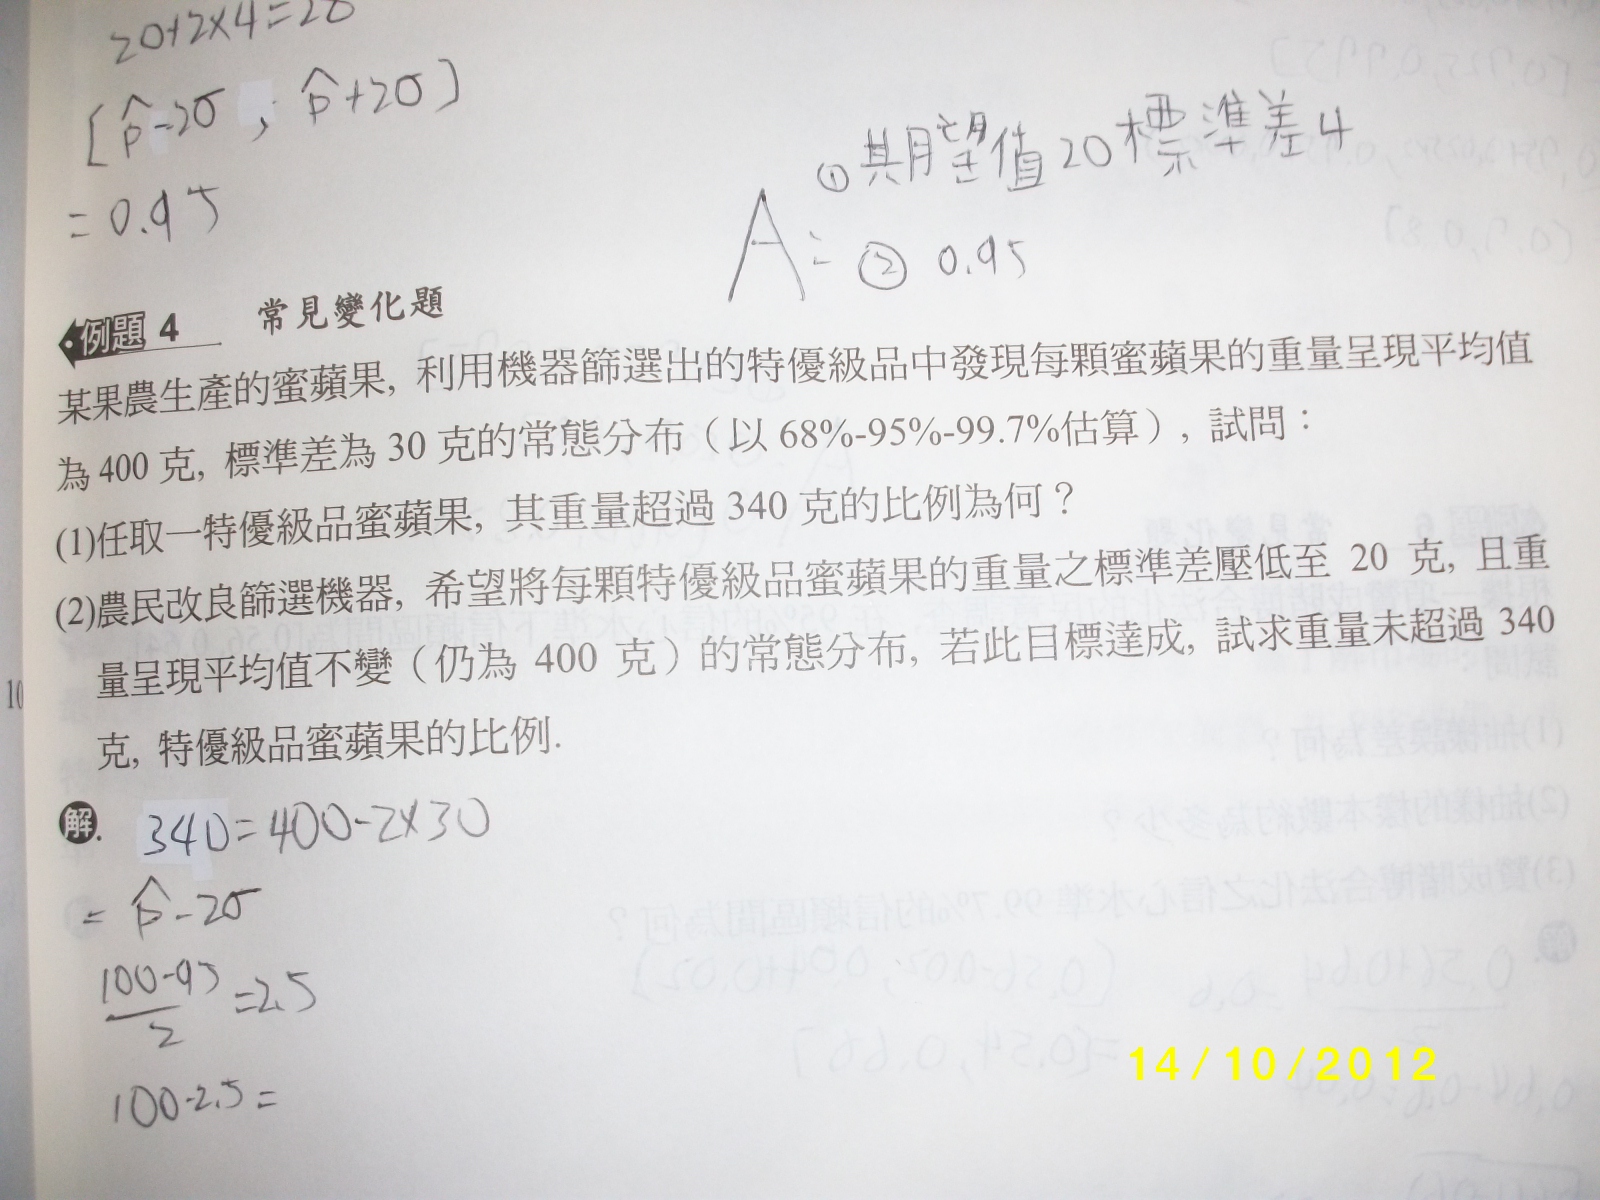 20+2×4=28
[p̂-2σ , p̂+2σ]
=0.95
①期望值20標準差4
A: ② 0.95
例題 4 常見變化題
某果農生產的蜜蘋果, 利用機器篩選出的特優級品中發現每顆蜜蘋果的重量呈現平均值
為 400 克, 標準差為 30 克的常態分布（以 68%-95%-99.7%估算）, 試問：
(1)任取一特優級品蜜蘋果, 其重量超過 340 克的比例為何？
(2)農民改良篩選機器, 希望將每顆特優級品蜜蘋果的重量之標準差壓低至 20 克, 且重
量呈現平均值不變（仍為 400 克）的常態分布, 若此目標達成, 試求重量未超過 340
克, 特優級品蜜蘋果的比例.
10
解. 340=400-2×30
= p̂-2σ
(100-95)/2 =2.5
100-2.5=
14/10/2012